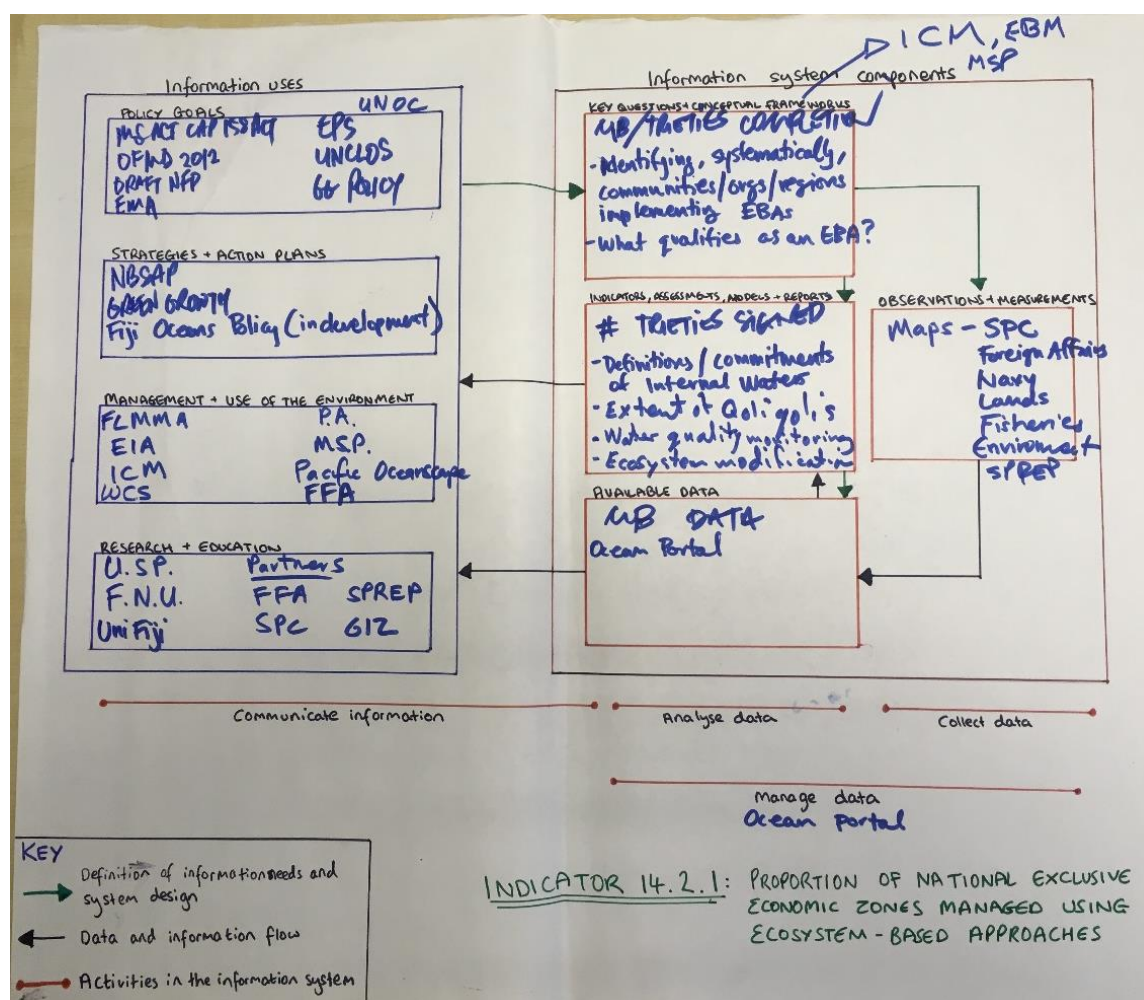 Information uses
POLICY GOALS
UNOC
MS ACT CAP 158 ACT EPS
OFMD 2012 UNCLOS
DRAFT NFP GG POLICY
EMA
STRATEGIES + ACTION PLANS
NBSAP
GREEN GROWTH
Fiji Oceans Policy (in development)
MANAGEMENT + USE OF THE ENVIRONMENT
FLMMA P.A.
EIA M.S.P.
ICM Pacific Oceanscape
WCS FFA
RESEARCH + EDUCATION
U.S.P. Partners
F.N.U. FFA SPREP
Uni Fiji SPC GIZ
ICM, EBM
MSP
Information system components
KEY QUESTIONS + CONCEPTUAL FRAMEWORKS
MB/TRETIES COMPLETION
- Identifying, systematically,
communities/orgs/regions
implementing EBAs
- What qualifies as an EBA?
INDICATORS, ASSESSMENTS, MODELS + REPORTS
# TRETIES SIGNED
- Definitions / commitments
of Internal Waters
- Extent of Qoliqolis
- Water quality monitoring
- Ecosystem modification
OBSERVATIONS + MEASUREMENTS
Maps - SPC
Foreign Affairs
Navy
Lands
Fisheries
Enviroment
SPREP
AVAILABLE DATA
MB DATA
Ocean Portal
Communicate information
Analyse data
Collect data
Manage data
Ocean portal
KEY
Definition of information needs and
system design
Data and information flow
Activities in the information system
INDICATOR 14.2.1: PROPORTION OF NATIONAL EXCLUSIVE
ECONOMIC ZONES MANAGED USING
ECOSYSTEM-BASED APPROACHES